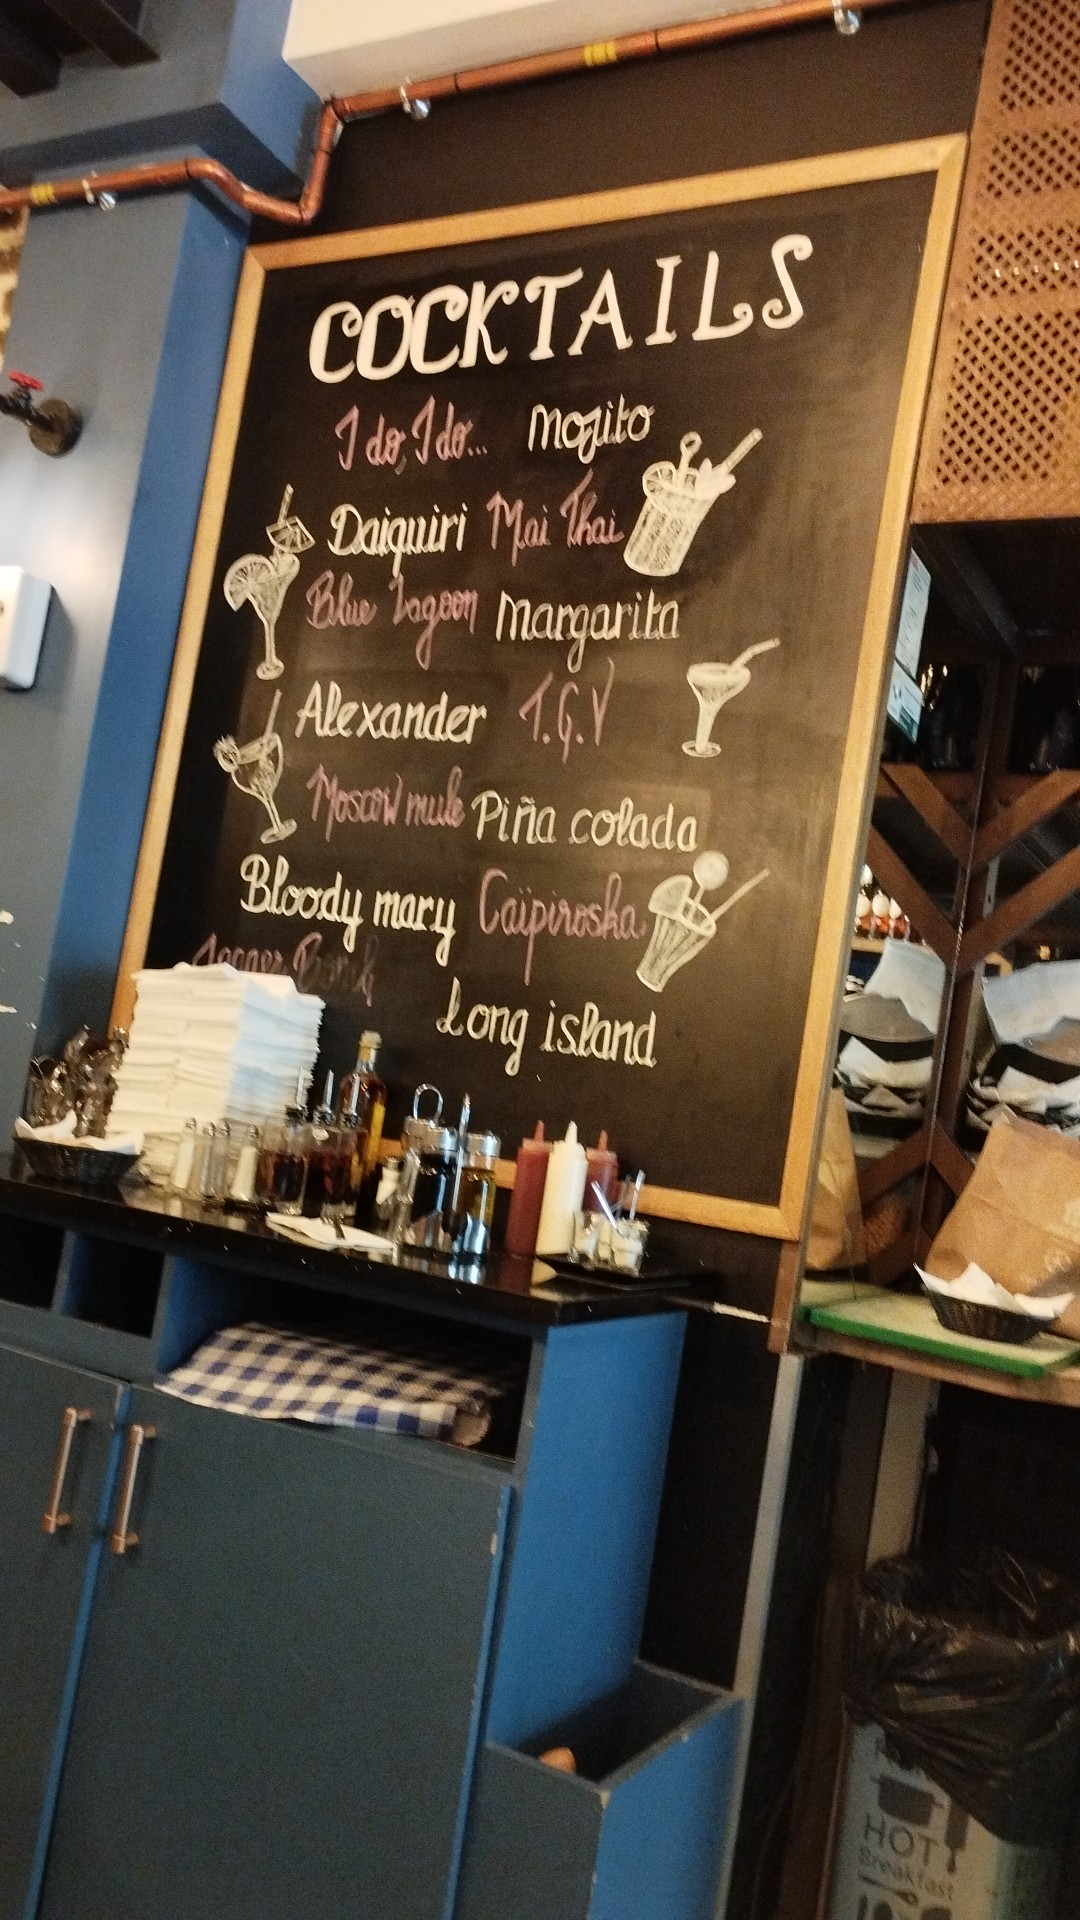 COCKTAILS
I do, I do... Mojito
Daiquiri Mai Thai
Blue Lagoon Margarita
Alexander T.G.V
Moscow mule Piña colada
Bloody mary Caïpiroska
Jagger Bomb
Long island
HOT
Breakfast